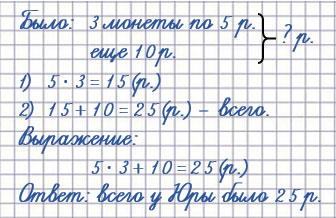 Было: 3 монеты по 5 р.
еще 10 р.
? р.
1) 5 · 3 = 15 (р.)
2) 15 + 10 = 25 (р.) – всего.
Выражение:
5 · 3 + 10 = 25 (р.)
Ответ: всего у Юры было 25 р.